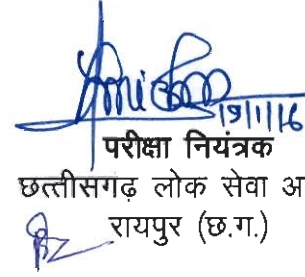 19/1/16
परीक्षा नियंत्रक
छत्तीसगढ़ लोक सेवा अ
रायपुर (छ.ग.)